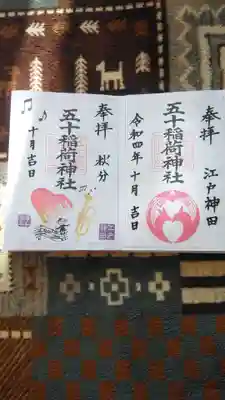 奉拝
江戸神田
五十稲荷神社
令和四年十月吉日
奉拝
秋分
五十稲荷神社
十月吉日